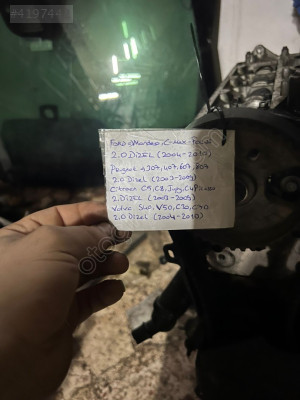 #419744
Ford Mondeo, C-Max - Focus
2.0 DİZEL (2004-2010)
Peugeot 307, 407, 607, 807
2.0 Dizel (2003-2009)
Citroen C5, C8, Jumpy, C4 Picasso
2.0 DİZEL (2003-2009)
Volvo S40, V50, C30, C70
2.0 Dizel (2004-2010)